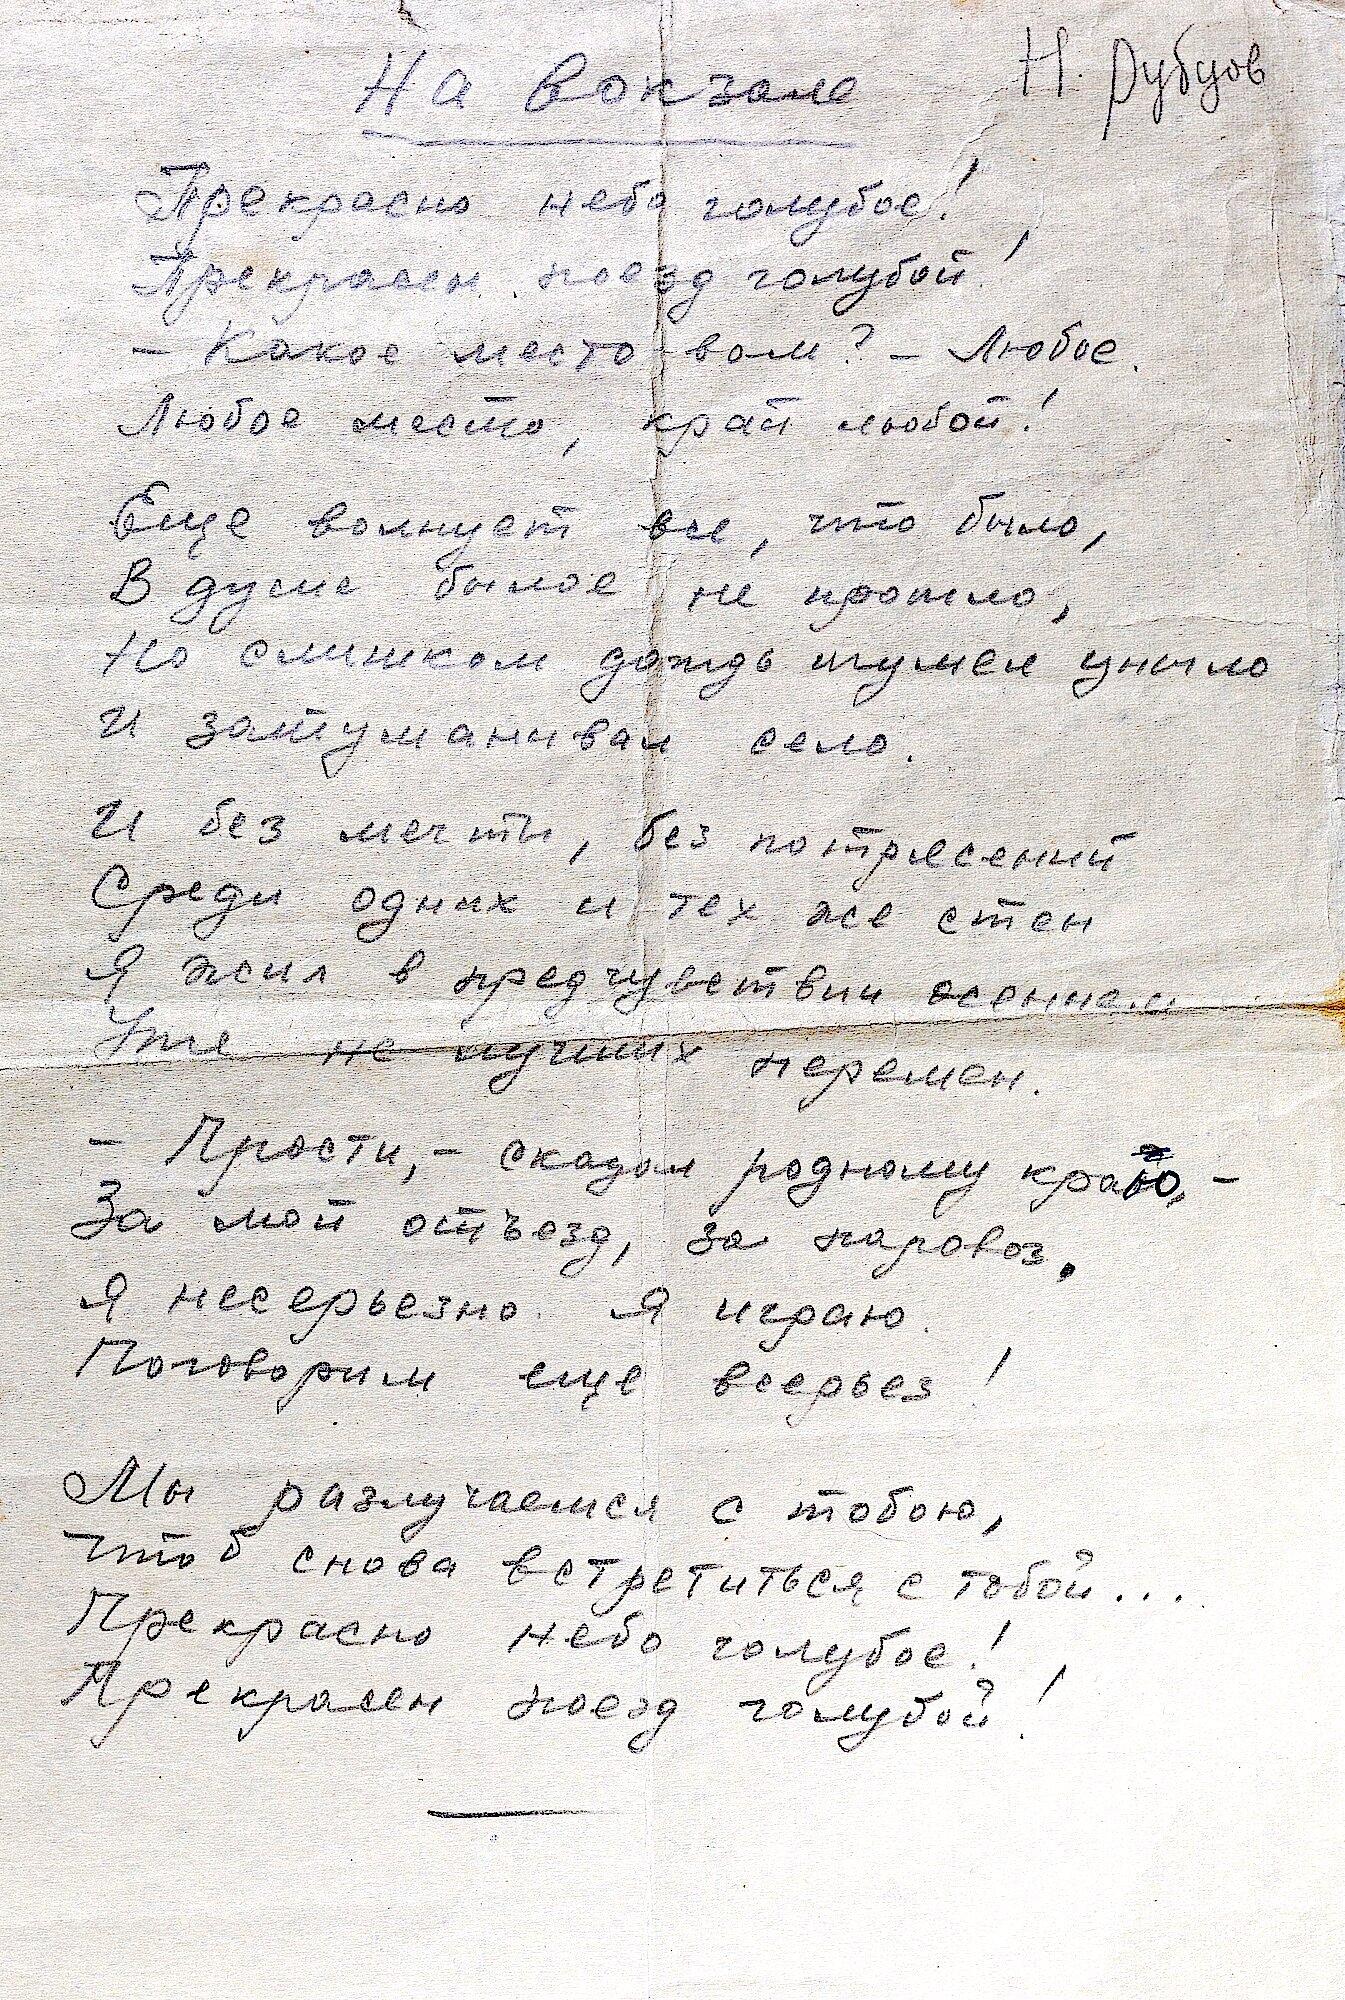 На вокзале
Н. Рубцов
Прекрасно небо голубое!
Прекрасен поезд голубой!
– Какое место вам? – Любое.
Любое место, край любой!
Еще волнует все, что было,
В душе былое не прошло,
Но слишком дождь шумел уныло
И затуманивал село.
И без мечты, без потрясений
Среди одних и тех же стен
Я жил в предчувствии осеннем
Уже не лучших перемен.
– Прости, – сказал родному краю, –
За мой отъезд, за паровоз.
Я несерьезно. Я играю.
Поговорим еще всерьез!
Мы разлучаемся с тобою,
Чтоб снова встретиться с тобой...
Прекрасно небо голубое!
Прекрасен поезд голубой!